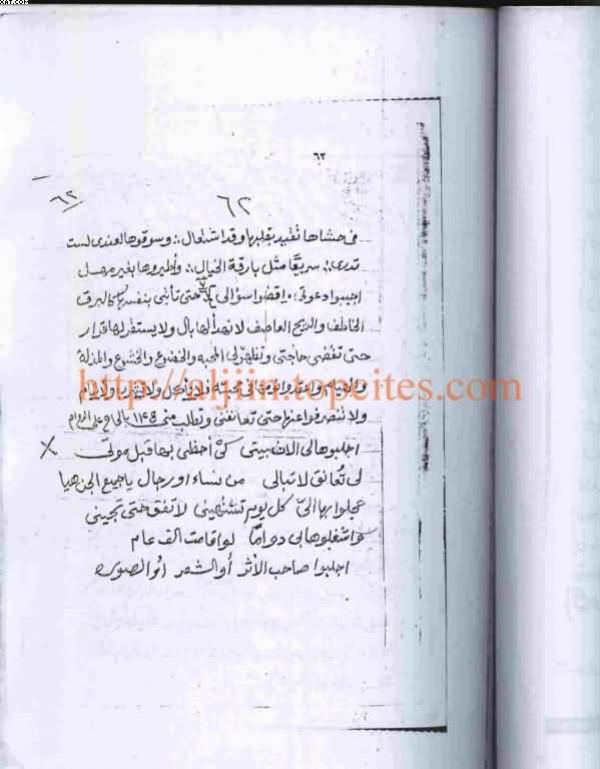 ٦٢
٦٢ ٦٢
فى حشاها تقيد بقلبها وقد اشتعال ؛ وسوقوها لعندى لست
تدرى ؛ سريعًا مثل بارقة الخيال ؛ وأطيروها بغير مهل
اجيبوا دعوتى واقضوا سؤالى حتى تأتنى بنفسها كالبرق
الخاطف والريح العاصف لا تهدأ لها بال ولا يستقر لها قرار
حتى تقضى حاجتى وتظهر لى المحبه والخضوع والخشوع والمذلة
ولا تنصرفوا عنها حتى تعانقنى وتطلب منى على الدوام
اجلبوها لى الان بيتى كى أحظى بها قبل موتى
لى تعانق لا تبالى من نساء او رجال يا جميع الجن هيا
عجلوا بها الىّ كل يوم تشتهينى لا تفق حتى تجينى
واشغلوها بى دوامًا لو اقامت الف عام
اجلبوا صاحب الأثر أو الشعر أو الصوره
http://aljiin.topcites.com